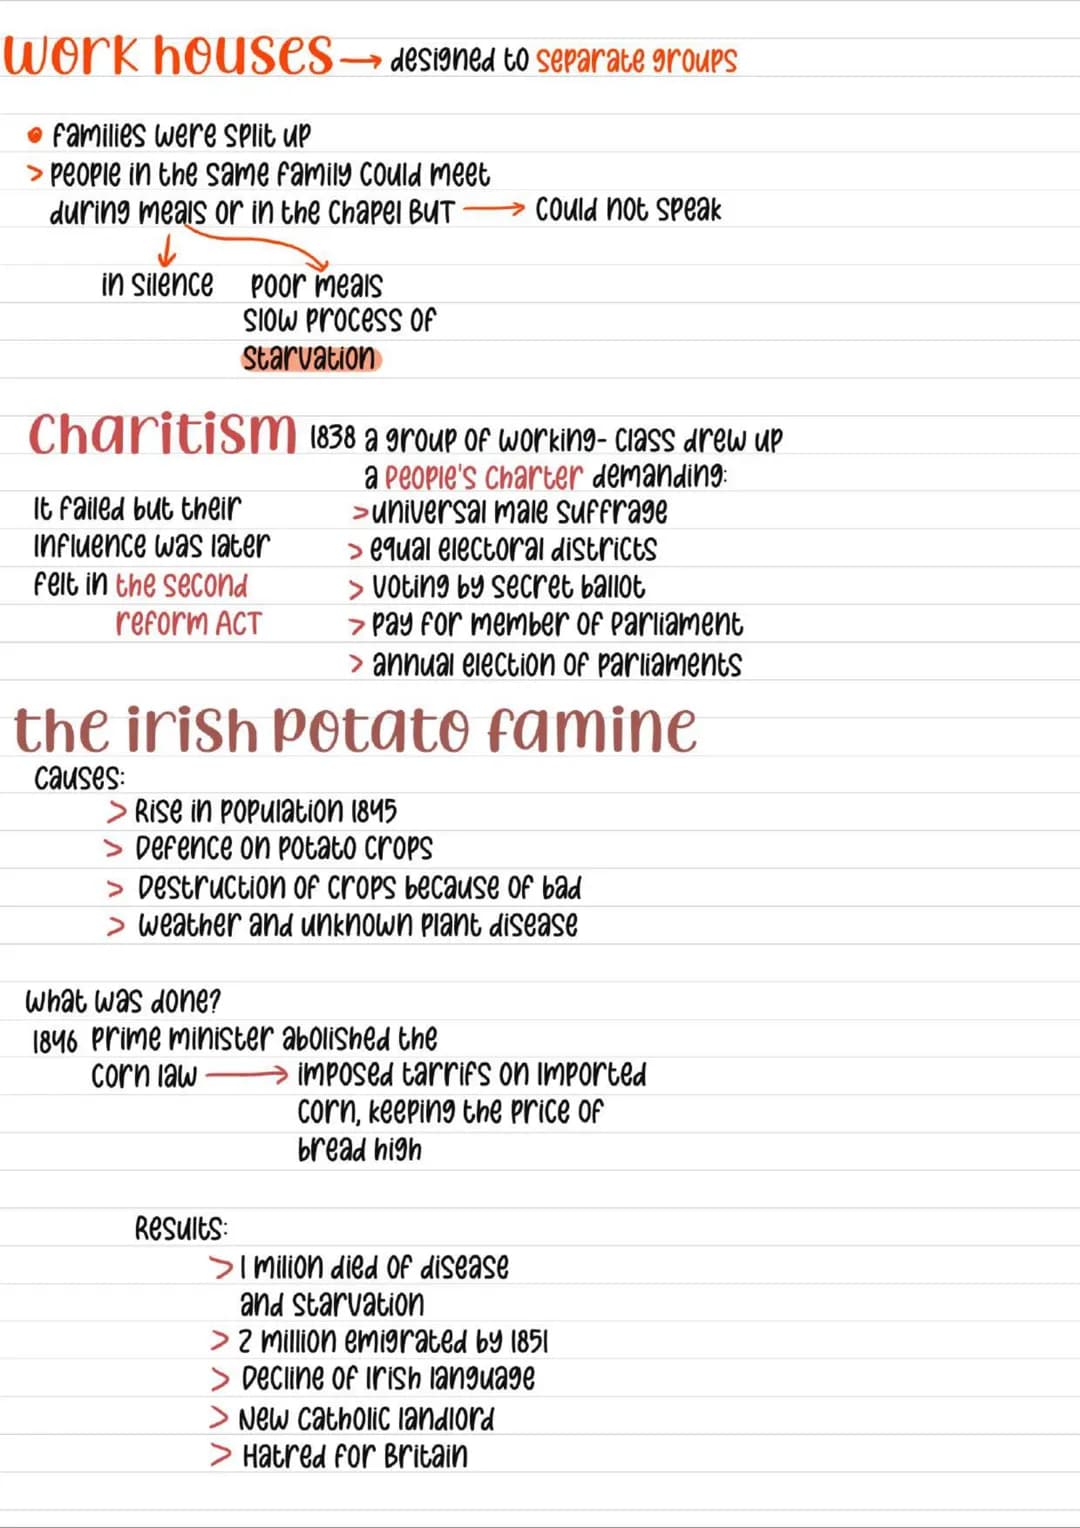 work houses → designed to separate groups
• families were split up
> people in the same family could meet
during meals or in the chapel BUT → could not speak
in silence poor meals
slow process of
starvation
Charitism 1838 a group of working- class drew up
a people's charter demanding:
It failed but their
influence was later
felt in the second
reform ACT
>universal male suffrage
> equal electoral districts
> voting by secret ballot
> pay for member of parliament
> annual election of parliaments
the irish potato famine
causes:
> Rise in population 1845
> Defence on potato crops
> Destruction of crops because of bad
> weather and unknown plant disease
what was done?
1846 prime minister abolished the
corn law → imposed tarrifs on imported
corn, keeping the price of
bread high
Results:
>1 milion died of disease
and starvation
> 2 million emigrated by 1851
> Decline of Irish language
> New catholic landlord
> Hatred for Britain